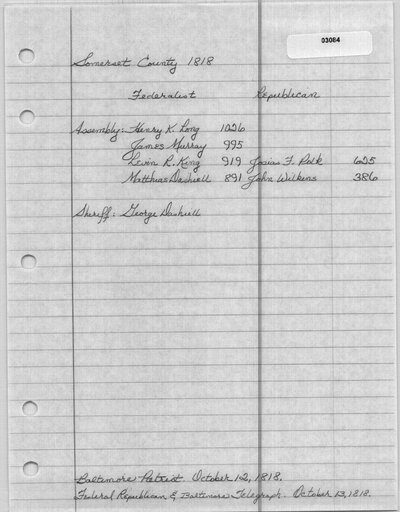 03084
Somerset County 1818
Federalist Republican
Assembly: Henry K. Long 1026
James Murray 995
Levin R. King 919 Josias F. Polk 625
Matthias Dashiell 891 John Wilkins 386
Sheriff: George Dashiell
Baltimore Patriot. October 12, 1818.
Federal Republican & Baltimore Telegraph. October 13, 1818.